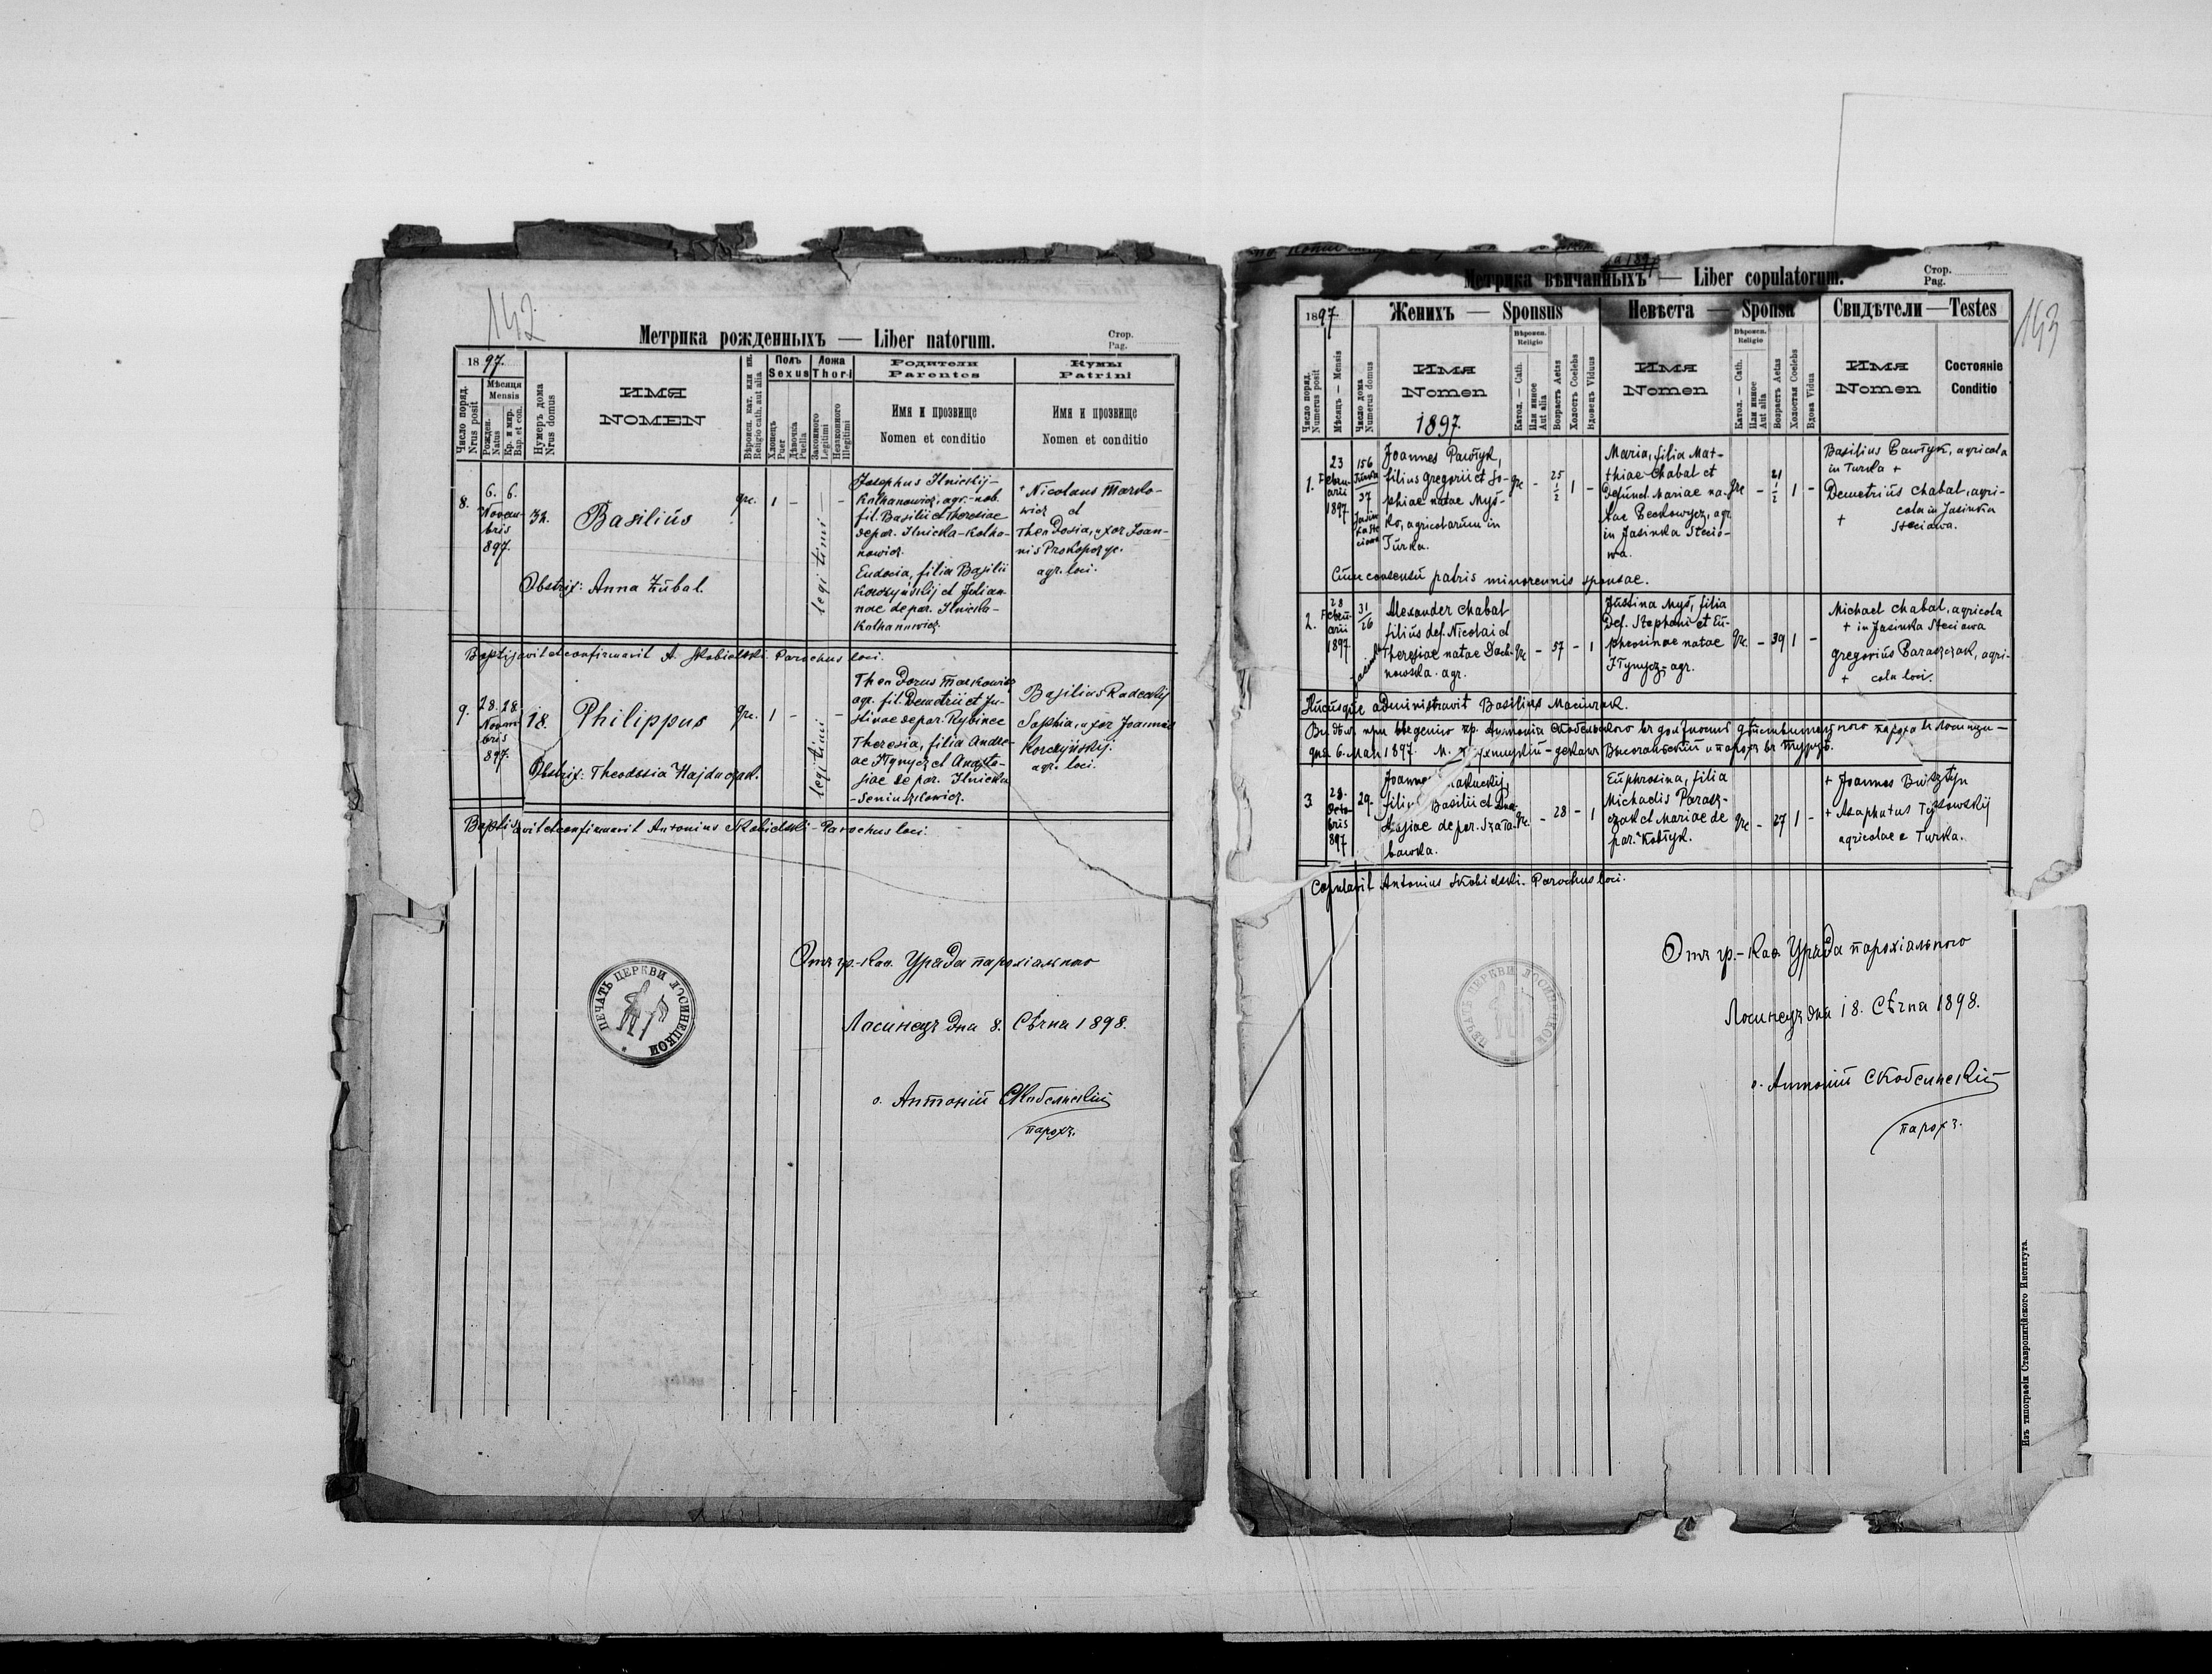 142
Метрика рожденныхъ — Liber natorum.
Стор.
Pag.
1897.
Число поряд.
Nrus posit
Мѣсяця
Mensis
Рожден.
Natus
Кр. и мvр.
Bap. et con.
Нумеръ дома
Nrus domus
ИМЯ
NOMEN
Вѣроисп. кат. или ин.
Religio cath. aut alia
Полъ
Sexus
Хлопець
Puer
Дѣвочка
Puella
Ложа
Thori
Законного
Legitimi
Незаконного
Illegitimi
Родители
Parentes
Имя и прозвище
Nomen et conditio
Кумы
Patrini
Имя и прозвище
Nomen et conditio
8.
6. 6.
Novem-
bris
897.
32.
Basilius
gre.
1 –
legitimi
–
Josephus Ilnickij-
Kolhanowicz, agr.-nob.
fil. Basilii et Theresiae
de par. Ilnicka-Kolha-
nowicz.
Eudocia, filia Basilii
et Julian-
nae de par. Ilnicka-
Kolhanowicz.
+ Nicolaus
wicz et
Theodosia, uxor Joan-
nis
agr. loci.
Obstrix: Anna Zubal.
Baptisavit et confirmavit A. Skobielski Parochus loci.
9.
28. 28.
Novem
bris
897.
18.
Philippus
gre.
1 –
legitimi
–
Theodorus
agr. fil. Demetrii et Ju-
stinae de par. Rypince
Theresia, filia Andre-
ae Ilnycz et Anasta-
siae de par. Ilnicka
Basilius Radecskij
Sophia, uxor Joannes
Korczyńskij.
agr. loci.
Obstrix: Theodosia Hajduczak.
Baptisavit et confirmavit Antonius Skobielski – Parochus loci.
Отъ гр.-каѳ. Уряда парохіального
Лосинецъ дна 8. Сѣчна 1898.
о. Антоній Скобельскій
парохъ.
ПЕЧАТЬ ЦЕРКВИ ЛОСИНЕЦКОИ
143
Метрика вѣнчанныхъ — Liber copulatorum.
Стор.
Pag.
1897
Число поряд.
Numerus posit
Мѣсяцъ — Mensis
Число дома
Numerus domus
Женихъ — Sponsus
Имя
Nomen
1897
Вѣроисп.
Religio
Катол. — Cath.
Или иное
Aut alia
Возрастъ Aetas
Холость Coelebs
Вдовецъ Viduus
Невѣста — Sponsa
Имя
Nomen
Вѣроисп.
Religio
Катол. — Cath.
Или иное
Aut alia
Возрастъ Aetas
Холостая Coelebs
Вдова Vidua
Свидѣтели — Testes
Имя
Nomen
Состояніе
Conditio
1.
23
Febru-
arii
1897
156
Turka
37
Joannes Pawłyk,
filius Gregorii et So-
phiae natae Myś-
ko, agricolarum in
Turka.
gre
–
25
1/2
1
–
Maria, filia Mat-
thiae Chabal et
Defunct. Mariae na-
tae agr
in Jasinka Stecio-
wa.
gre
–
21
1/2
1
–
Basilius Pawłyk, agricola
in Turka +
Demetrius Chabal, agri-
cola in Jasinka
+ Steciowa.
Cum consensu patris minorennis sponsae.
2.
28
Febru-
arii
1897
31/26
Alexander Chabal
filius def. Nicolai et
Theresiae natae
agr.
gre
–
57
–
1
Justina Myś, filia
Def. Stephani et Eu-
phrosinae natae
Ilnycz, agr.
gre.
–
39
1
–
Michael Chabal, agricola
+ in Jasinka Steciowa
Gregorius Paraszczak, agri-
+ cola loci.
Hucusque administravit Basilius
дня 6. Мая 1897. деканъ Высочанскій и парохъ въ Туруѣ.
3.
28.
Octo-
bris
897
29.
Joanne
Basilii et Ana-
stasiae de par.
gre.
–
28
–
1
Euphrosina, filia
Michaelis Parasz-
czak et Mariae de
par.
gre
–
27
1
–
+ Joannes
+ Asaphatus
agricolae e Turka.
Copulavit Antonius Skobielski – Parochus loci.
Отъ гр.-каѳ. Уряда парохіального
Лосинецъ дня 18. Сѣчна 1898.
о. Антоній Скобельскій
парохъ.
ПЕЧАТЬ ЦЕРКВИ ЛОСИНЕЦКОИ
Изъ типографіи Ставропигійского Института.